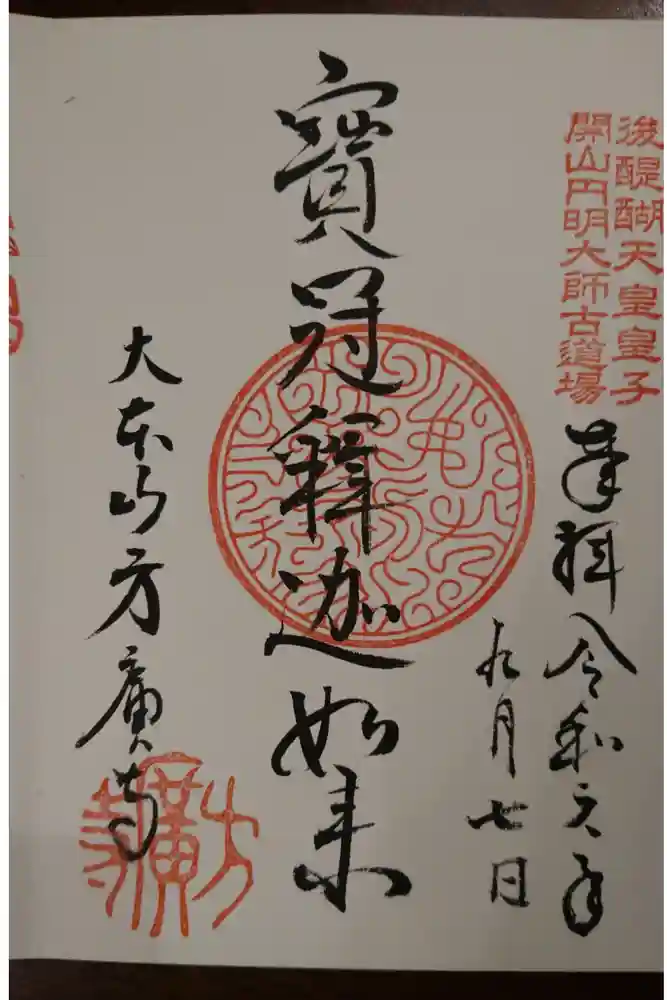 後醍醐天皇皇子
開山円明大師古道場
奉拝 令和元年
九月七日
寳冠釋迦如来
大本山方廣寺
方廣寺